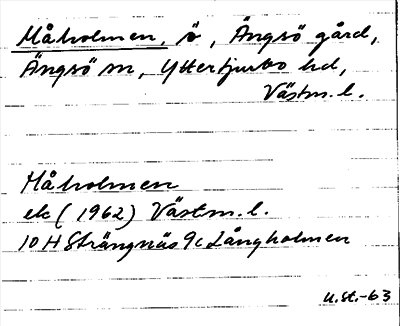 Måholmen, ö, Ängsö gård,
Ängsö sn, Yttertjurbo hd,
Västm. l.
Måholmen
ek (1962) Västm. l.
10 H Strängnäs 9c Långholmen
U.St.-63